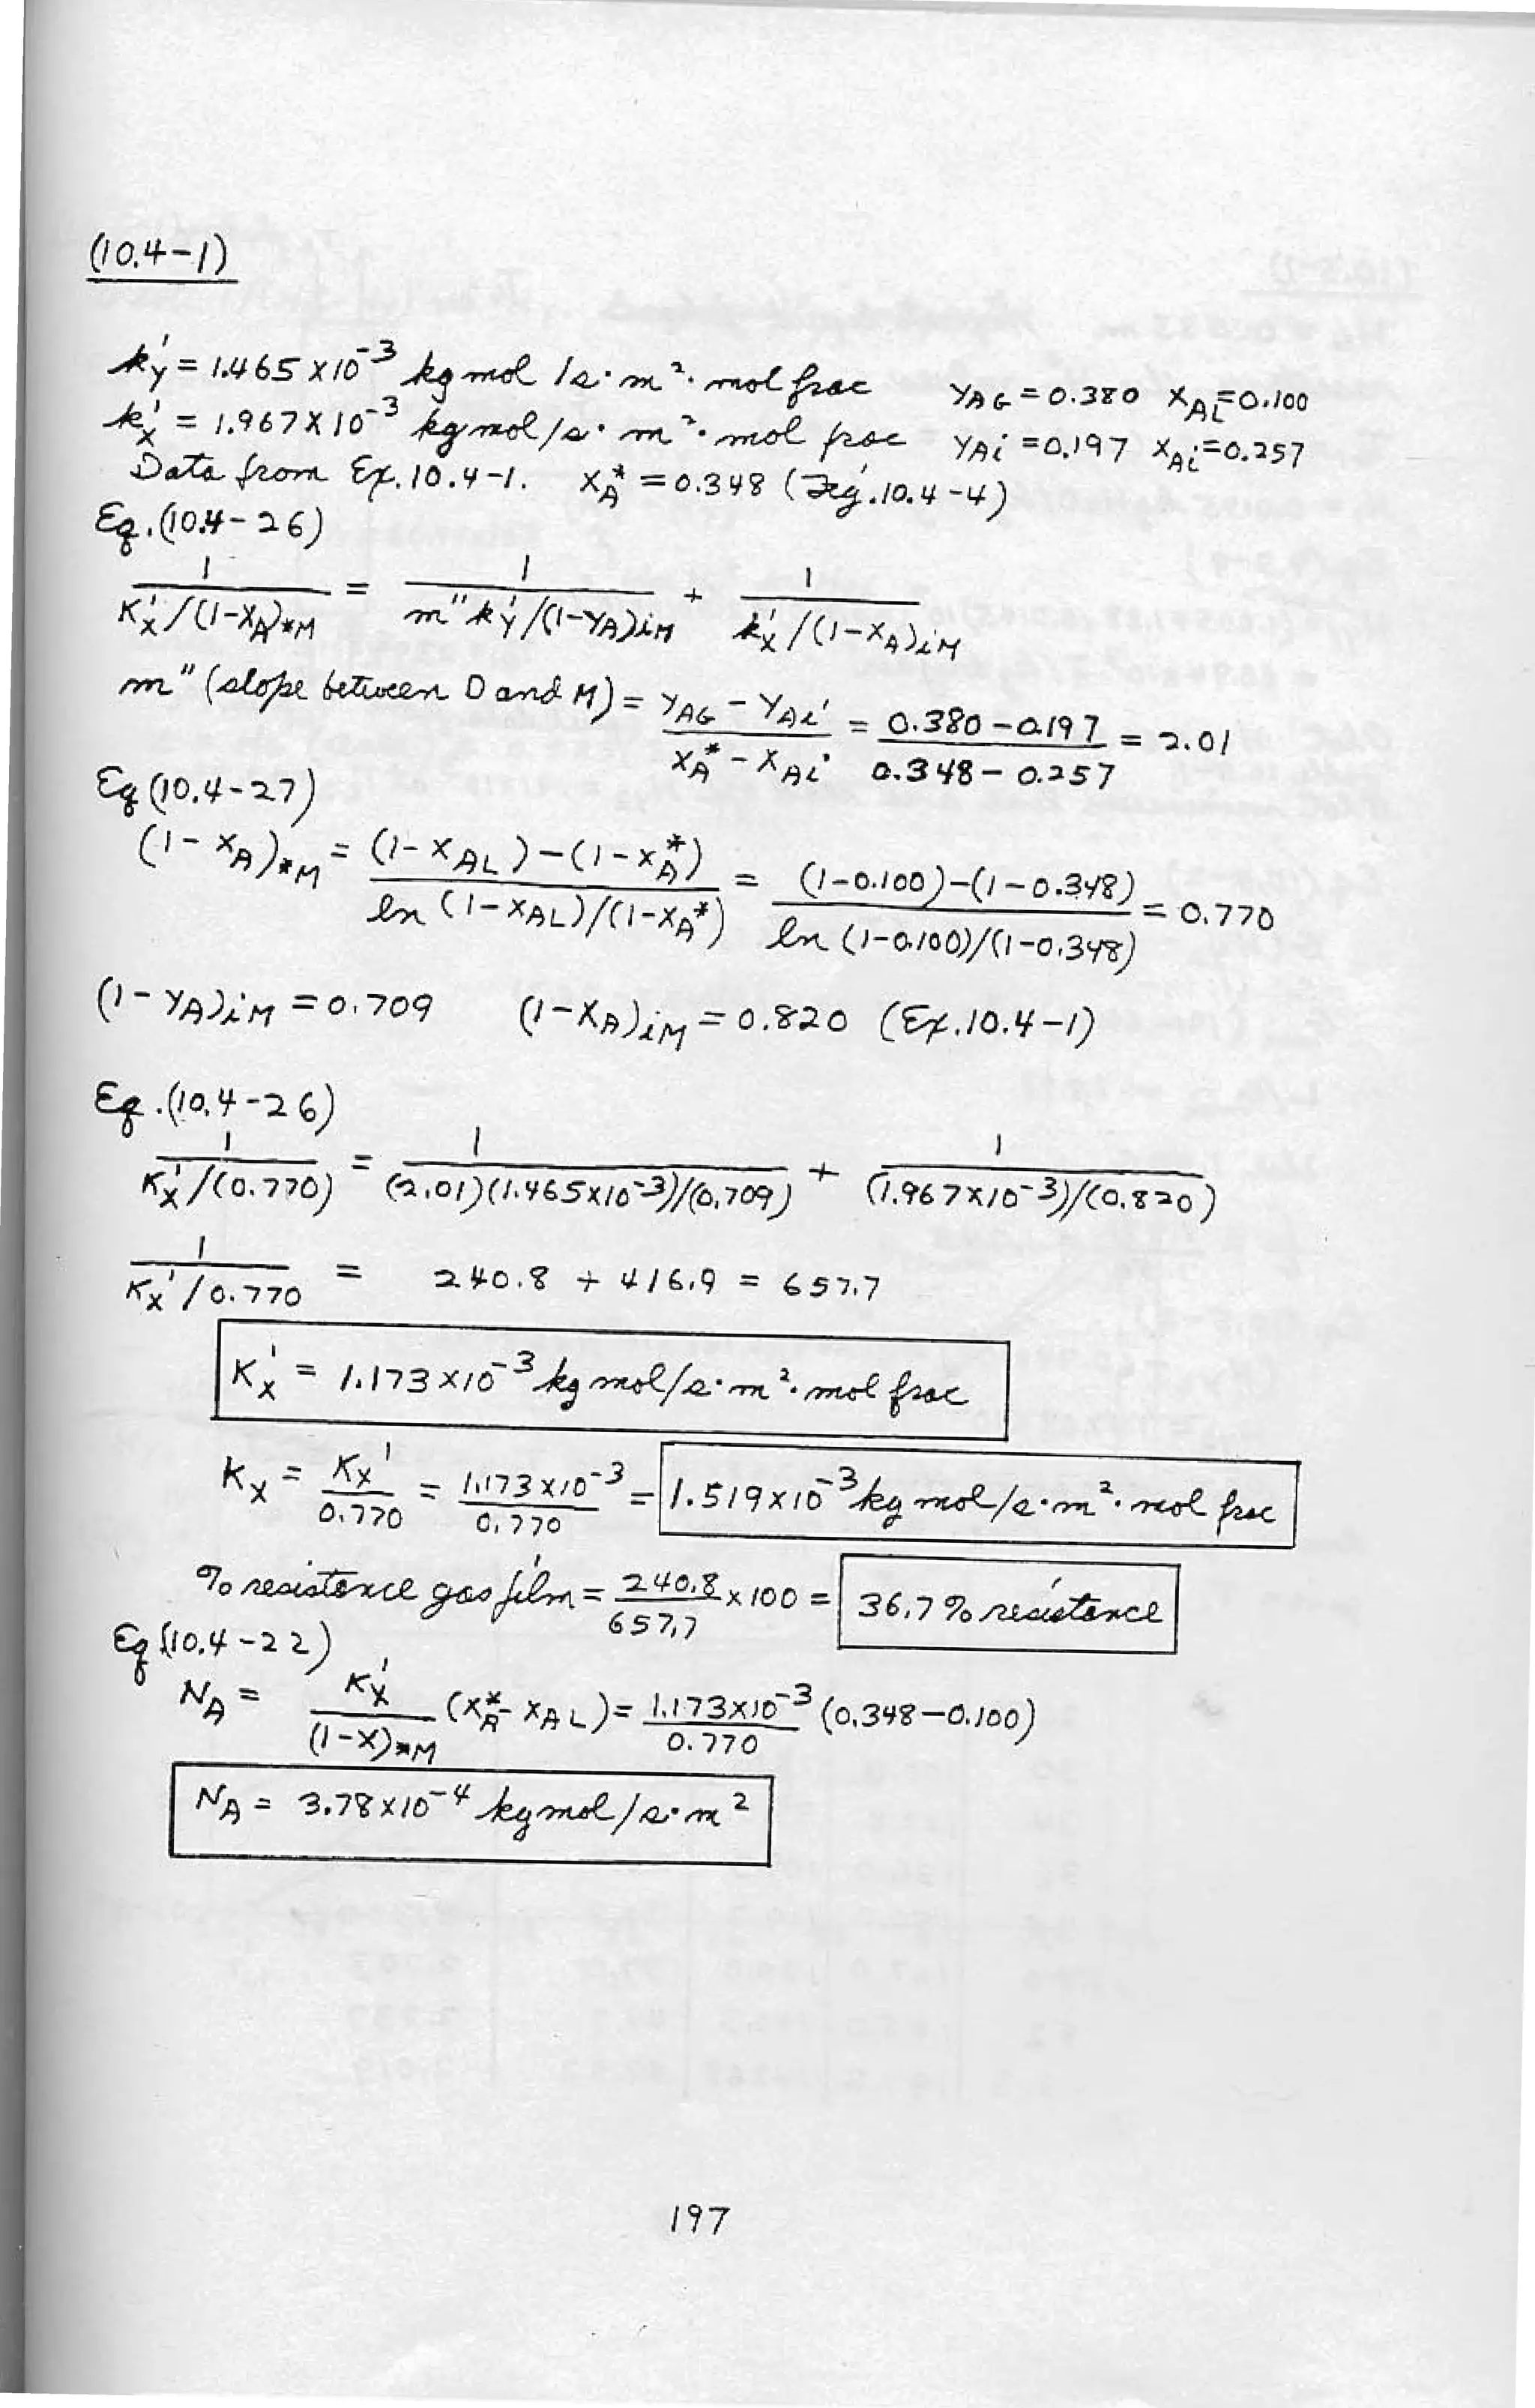 (10.4-1)
k'y = 1.465 x 10^-3 kg mol /s·m²·mol frac  yAG = 0.380  xAL = 0.100
k'x = 1.967 x 10^-3 kg mol/s·m²·mol frac  yAi = 0.197  xAi = 0.257
Data from Ex. 10.4-1.  xA* = 0.348 (Fig. 10.4-4)
Eq. (10.4-26)
1 / (K'x/(1-xA)*M) = 1 / (m"k'y/(1-yA)iM) + 1 / (k'x/(1-xA)iM)
m" (slope between D and M) = (yAG - yAi) / (xA* - xAi) = (0.380 - 0.197) / (0.348 - 0.257) = 2.01
Eq (10.4-27)
(1-xA)*M = ((1-xAL) - (1-xA*)) / (ln (1-xAL)/(1-xA*)) = ((1-0.100)-(1-0.348)) / (ln (1-0.100)/(1-0.348)) = 0.770
(1-yA)iM = 0.709  (1-xA)iM = 0.820  (Ex. 10.4-1)
Eq. (10.4-26)
1 / (K'x/(0.770)) = 1 / ((2.01)(1.465x10^-3)/(0.709)) + 1 / ((1.967x10^-3)/(0.820))
1 / (Kx'/0.770) = 240.8 + 416.9 = 657.7
K'x = 1.173 x 10^-3 kg mol/s·m²·mol frac
Kx = Kx' / 0.770 = 1.173 x 10^-3 / 0.770 = 1.519 x 10^-3 kg mol/s·m²·mol frac
% resistence gas film = 240.8 / 657.7 x 100 = 36.7 % resistence
Eq (10.4-22)
NA = K'x / (1-x)*M (xA* - xAL) = 1.173x10^-3 / 0.770 (0.348-0.100)
NA = 3.78 x 10^-4 kg mol/s·m²
197